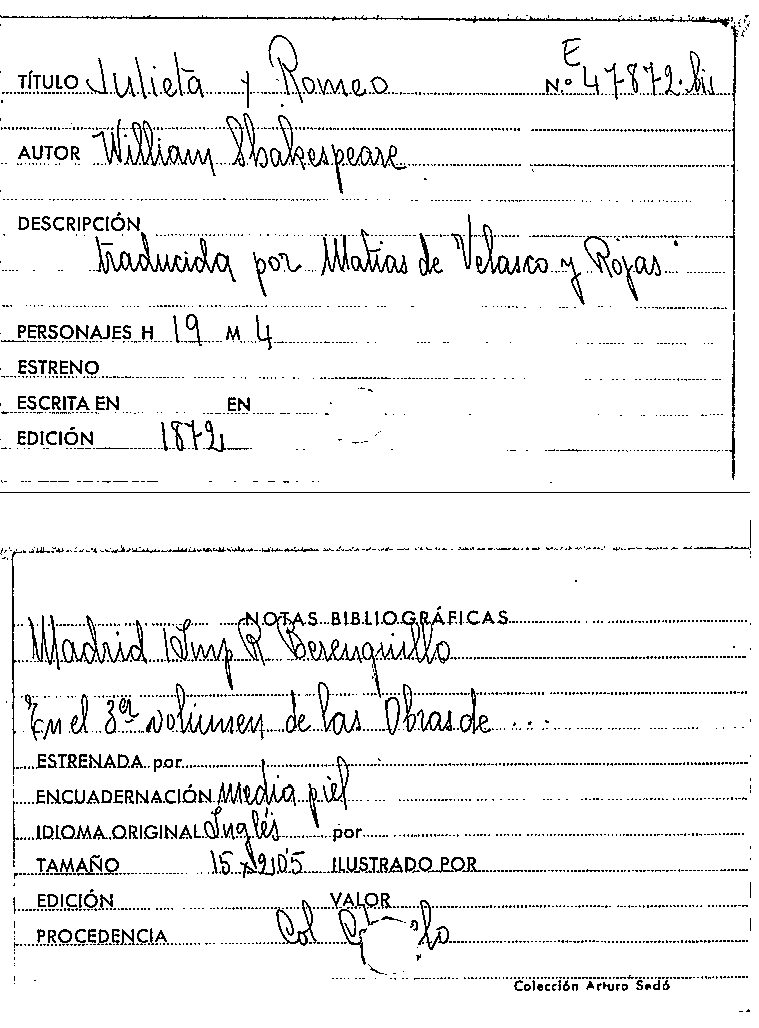 TÍTULO Julieta y Romeo
E
N.º 47872-bis
AUTOR William Shakespeare
DESCRIPCIÓN
traducida por Matias de Velasco y Rojas
PERSONAJES H 19 M 4
ESTRENO
ESCRITA EN EN
EDICIÓN 1872
NOTAS BIBLIOGRÁFICAS
Madrid Imp R Berenguillo
En el 3er volumen de las Obras de ...
ESTRENADA por
ENCUADERNACIÓN media piel
IDIOMA ORIGINAL Inglés por
TAMAÑO 15x21'5 ILUSTRADO POR
EDICIÓN VALOR
PROCEDENCIA Col
Colección Arturo Sedó